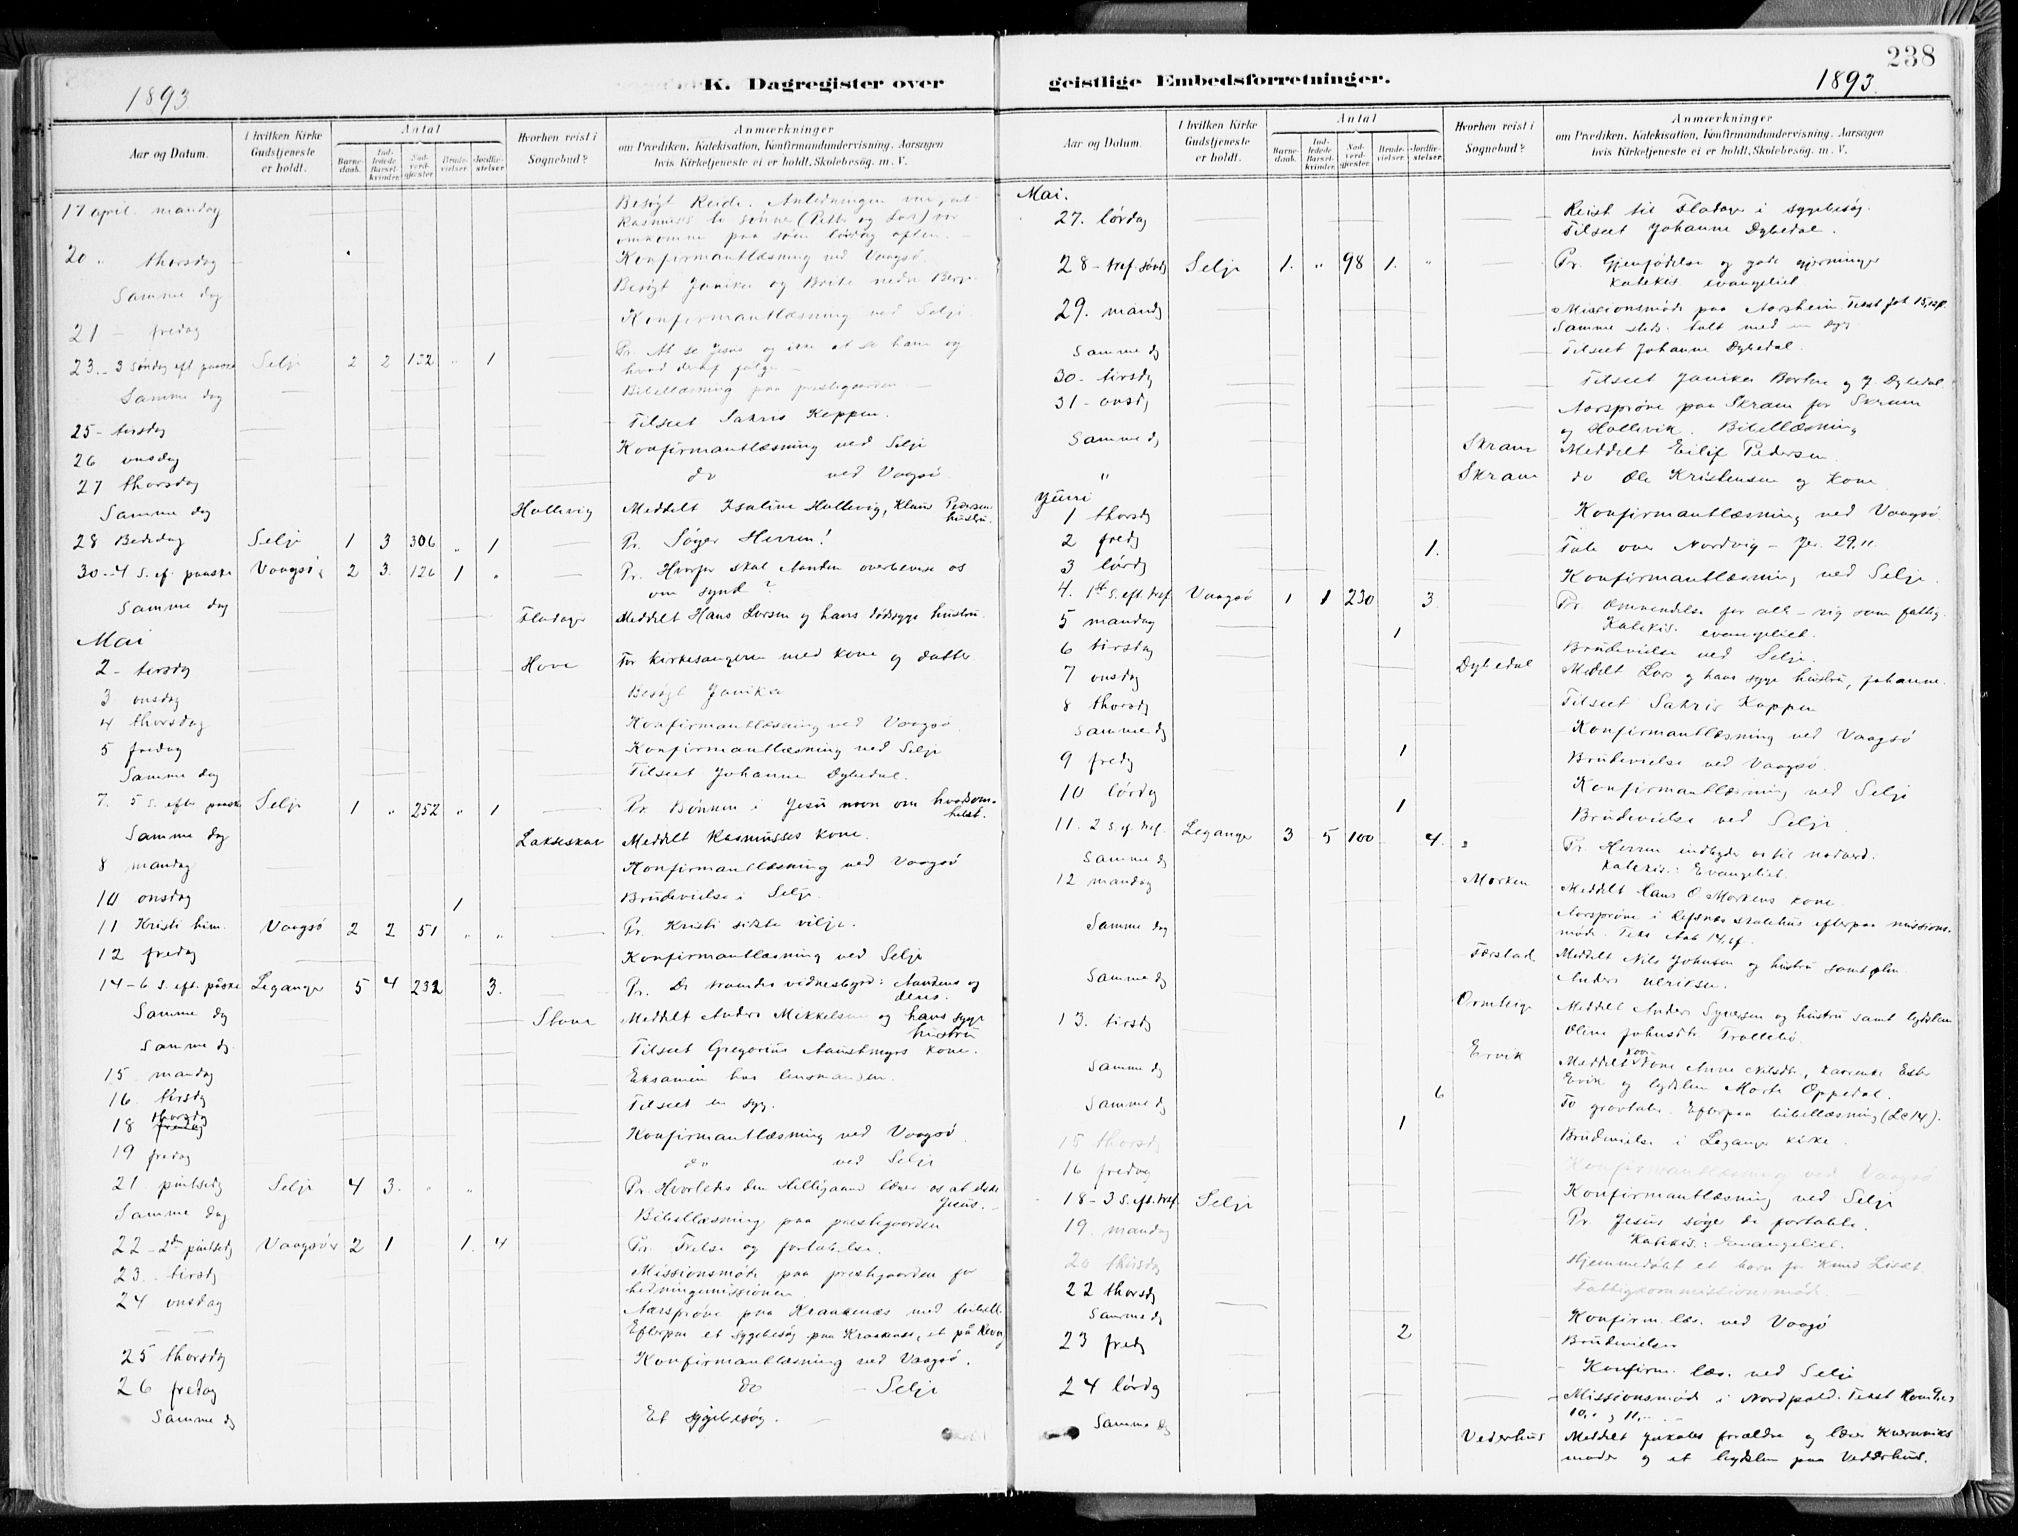 238
1893
K. Dagregister over
geistlige Embedsforretninger.
1893.
Aar og Datum.
I hvilken Kirke Gudstjeneste er holdt.
Antal
Barnedaab.
Indledede Barselkvinder.
Nadverdgjester
Brudevielser
Jordfæstelser
Hvorhen reist i Sognebud?
Anmærkninger
om Prædiken, Katekisation, Konfirmandundervisning, Aarsagen
hvis Kirketjeneste ei er holdt, Skolebesög. m. V.
17 april mandag Besögt Anledningen var, at
Rasmuses to sønner (Petter og Lars) var
omkomne paa søen lørdag aften.
20 " thorsdag Konfirmantlæsning ved Vaagsø.
Samme dag Besögt Janika og Brite nedre Berge
21 - fredag Konfirmantlæsning ved Selje.
23 - 3 søndag eft. paaske Selje 2 2 132 " 1 Pr. At se Jesus og ikke at se ham og
hvad deraf følger
Samme dag Bibellæsning paa prestegaarden
25 - tirsdag Tilseet Sakris Koppen.
26 onsdag Konfirmantlæsning ved Selje
27 thorsdag do ved Vaagsø
Samme dag Hallevig Meddelt Isaline Hallevig, Klaus Pedersens
hustru.
28 Bededag Selje 1 3 306 " 1 Pr. Søger Herren!
30 - 4 S. ef. paaske Vaagsø 2 3. 126 1 " Pr. Hvorfor skal Aanden overbevise os
om synd?
Samme dag Flatager Meddelt Hans Larsen og hans dødssyge hustru.
Mai
2 - tirsdg Hove For kirkesangeren med kone og datter
3 onsdag Besögt Janika
4 thorsdag Konfirmantlæsning ved Vaagsø
5 fredag Konfirmantlæsning ved Selje
Samme dag Tilseet Johanne Dybedal.
7. 5 S. efter paaske Selje 1 " 252 " 1 Pr. Bønnen i Jesu navn om hvadsom-
helst.
Samme dag Lakseskar Meddelt Rasmusses kone.
8 mandag Konfirmantlæsning ved Vaagsø
10 onsdag 1 Brudevielse i Selje.
11 Kristi him. Vaagsø 2 2 51 " " Pr. Kristi sidste vilje.
12 fredag Konfirmantlæsning ved Selje
14 - 6 S. eft. påske Leganger 5 4 232 3. Pr. De tvende vidnesbyrd: Aandens og
deres.
Samme dag Stove Meddelt Anders Mikkelsen og hans syge
hustru
Samme dg. Tilseet Gregorius Aarstmyrs kone.
15 mandag Eksamen hos lensmanden.
16 tirsdg Tilseet en syg.
18 thorsdg Konfirmantlæsning ved Vaagsø
19 fredag do ved Selje
21 pintsedg Selje 4 3. " " Pr. Hvorledes den Helligaand lærer os at elske
Jesus.
Samme dag Bibellæsning paa prestegaarden
22 - 2den pintsedg Vaagsø 2 1 1. 4 Pr. Frelse og fortabelse.
23. tirsdg Missionsmøde paa prestegaarden for
hedningemissionen
24 onsdag Aarsprøve paa Kraakenæs med bibell.
Efterpaa et sygebesøg paa Kraakenæs, et på
25 thorsdag Konfirmantlæsning ved Vaagsø.
26 fredag do - Selje
Samme dg Et sygebesøg.
Aar og Datum.
I hvilken Kirke Gudstjeneste er holdt.
Antal
Barnedaab.
Indledede Barselkvinder.
Nadverdgjester
Brudevielser
Jordfæstelser
Hvorhen reist i Sognebud?
Anmærkninger
om Prædiken, Katekisation, Konfirmandundervisning, Aarsagen
hvis Kirketjeneste ei er holdt, Skolebesög. m. V.
Mai.
27. lørdag Reist til Flatager i sygebesøg.
Tilseet Johanne Dybedal.
28 - tref. søndg Selje 1. " 98 1. " Pr. Gjenfødelse og gode gjerninger
Katekis. evangeliet
29. mandg Missionsmøde paa Aarsheim. Tekst Joh 15,
Samme sted talt med en syg
Samme dg Tilseet Johanne Dybedal.
30 - tirsdg Tilseet Janika Berten og J. Dybedal.
31 - onsdg Aarsprøve paa Skram for Skram
og Hallevik. Bibellæsning
Samme dg Skram Meddelt Eilif Pedersen.
" Skram do Ole Kristensen og kone
Juni
1 thorsdg Konfirmantlæsning ved Vaagsø.
2 fredg 1. Tale over Nordvig - Jer. 29,11.
3 lørdg Konfirmantlæsning ved Selje.
4. 1ste S. eft. tref. Vaagsø 1 1 230 3. Pr. Omvendelse for alle - rig som fattig.
Katekis. evangeliet.
5 mandag 1 Brudevielse ved Selje.
6 tirsdg Dybedal Meddelt Lars og hans syge hustru, Johanne.
7 onsdg Tilseet Sakris Koppen
8 thorsdg Konfirmantlæsning ved Vaagsø
Samme dg 1 Brudevielse ved Vaagsø.
9 fredg Konfirmantlæsning ved Selje
10 lørdg 1 Brudevielse ved Selje.
11. 2 S. ef. tref. Leganger 3 5 100 4. Pr. Herren indbyder os til nadverd.
Katekis.: Evangeliet.
Samme dg Morken Meddelt Hans O. Morkens kone.
12 mandag Aarsprøve i Refsnes skolehus efterpaa missions-
møde.
Samme dag Færstad Meddelt Nils Johnsen og hustru samt
Anders Ulriksen.
Samme dg Ormberge Meddelt Anders Synesen og hustru samt lægdslem
Oline Johnsdtr Trollebø.
13. tirsdg Ervik Meddelt Anne Nilsdtr, Ester
Ervik og lægdslem Marte Oppedal.
Samme dg 6 To gravtaler. Efterpaa bibellæsning (Lc 14).
Samme dg 1 Brudevielse i Leganger kirke.
15 thorsdg Konfirmantlæsning ved Vaagsø
16 fredag Konfirmantlæsning ved Selje
18 - 3 S. eft. tref. Selje Pr. Jesus søger de fortabte.
Katekis.: Evangeliet.
19. mandag Hjemmedøbt et barn for Knud Liset.
20 tirsdag Fattigcommissionsmøde
22 thorsdg Konfirm. læs. ved Vaagsø
Samme dg 2 Brudevielser
23 fredg Konfirm. læs. ved Selje
24 lørdg Missionsmøde i Nordpold. Tekst
Samme dg Vederhus Meddelt Jakobs forældre og lærer Kvernviks
moder og et lægdslem paa Vedderhus.